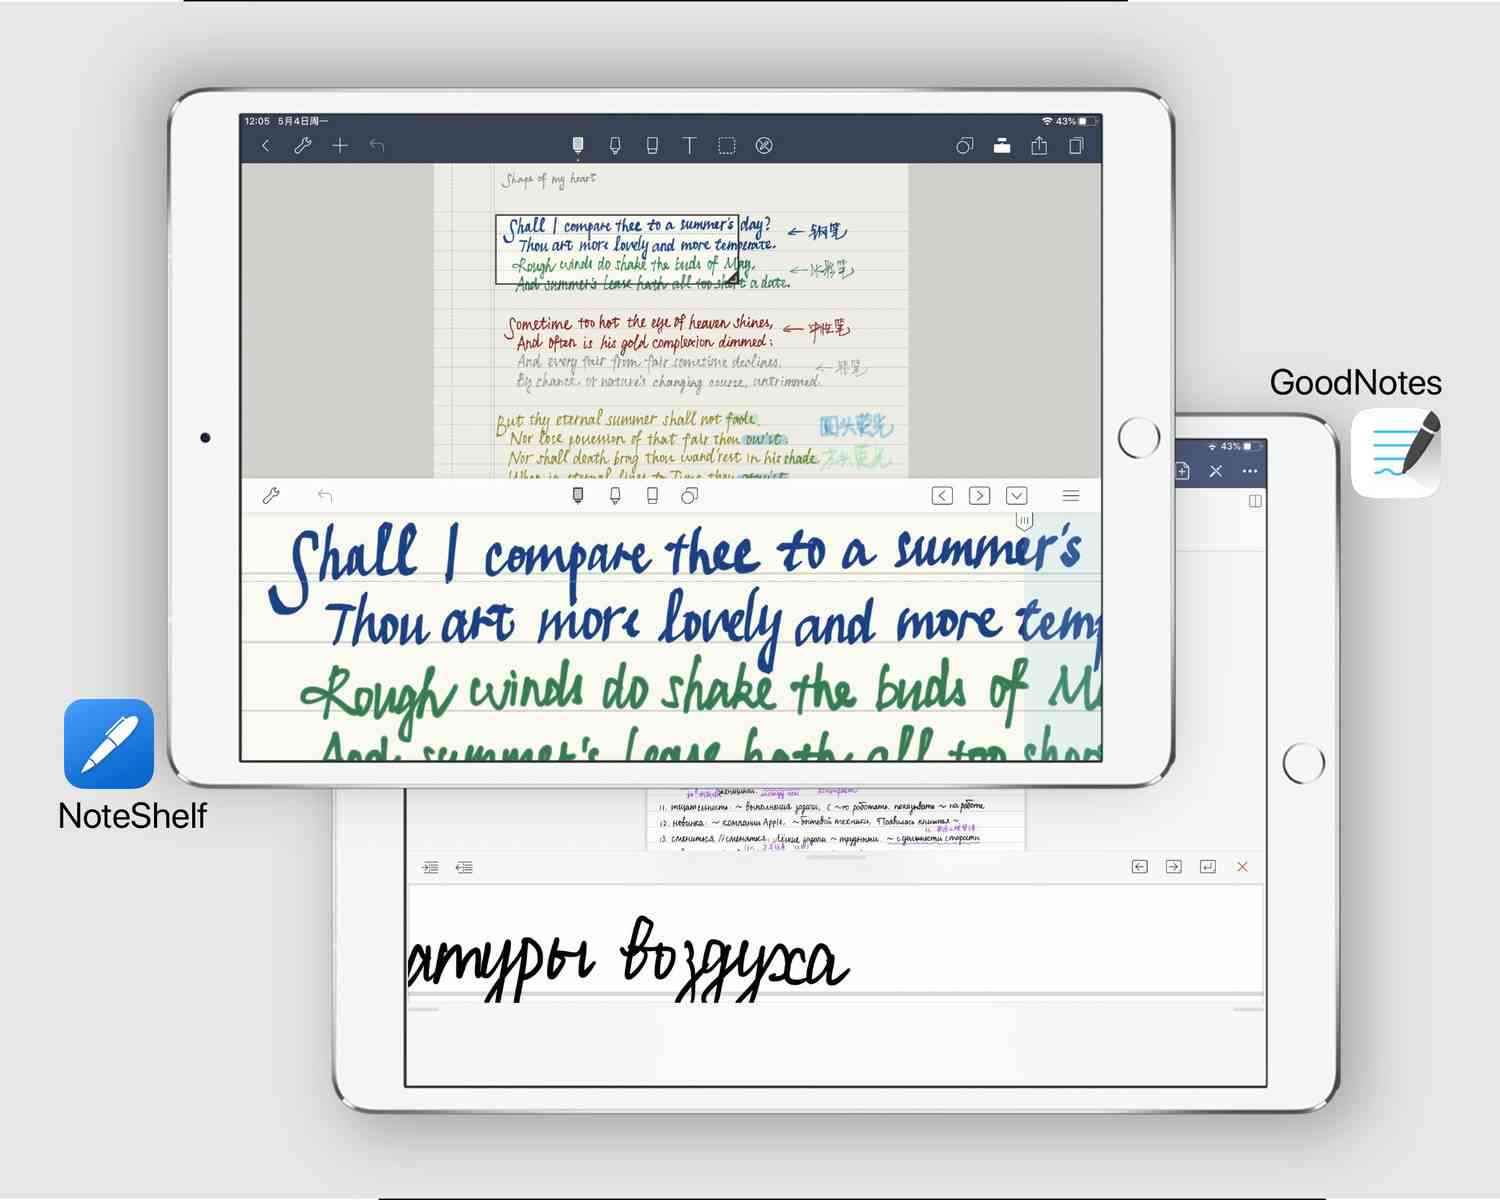 12:05 5月4日周一
43%
Shape of my heart
Shall I compare thee to a summer's day?
← 钢笔
Thou art more lovely and more temperate.
Rough winds do shake the buds of May,
And summer's lease hath all too short a date.
Sometime too hot the eye of heaven shines,
← 中性笔
And often is his gold complexion dimmed;
And every fair from fair sometime declines,
By chance, or nature's changing course, untrimmed.
But thy eternal summer shall not fade,
圆头荧光
Nor lose possession of that fair thou ow'st
Nor shall death brag thou wand'rest in his shade
方头荧光
When in eternal lines to Time thou grow'st
Shall I compare thee to a summer's
Thou art more lovely and more temp
Rough winds do shake the buds of Ma
And summer's lease hath all too shor
NoteShelf
GoodNotes
43%
11. тщательность: ~ выполнения задачи, с ~ю работать. показывать ~ на работе
12. новинка: ~ компании Apple, ~ бытовой техники, Появилась книжная ~
13. сменяться: Лёгкие задачи ~ трудными.
атуры воздуха